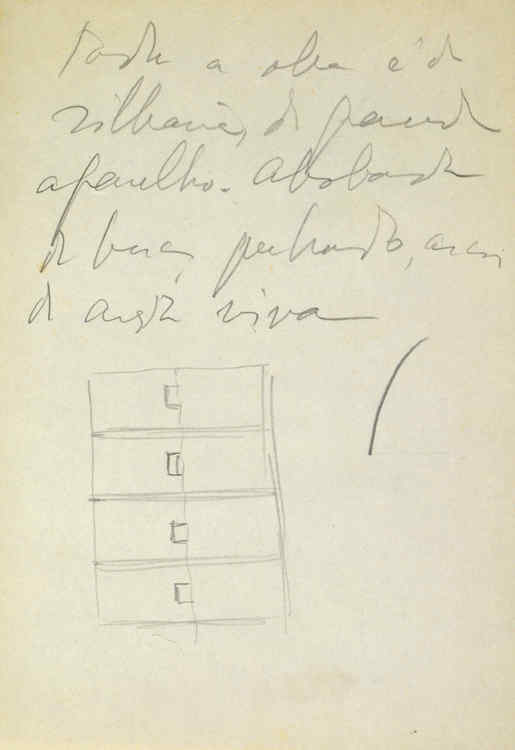 Toda a obra é de
silharia, de grande
aparelho. Abobada
de berço, quebrado, arcos
de aresta viva